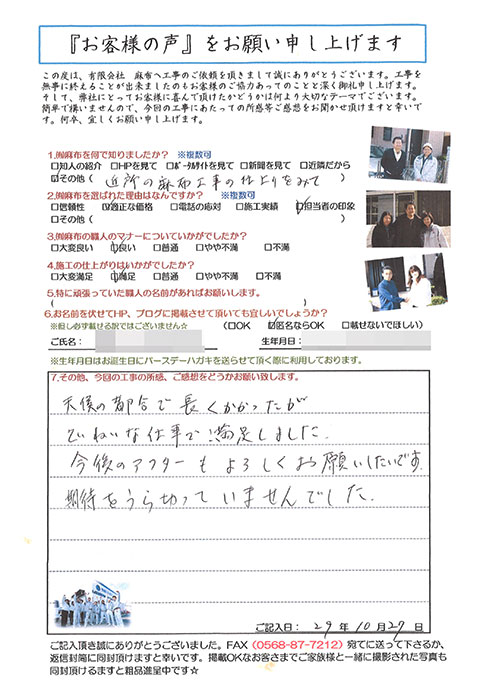 『お客様の声』をお願い申し上げます
この度は、有限会社 麻布へ工事のご依頼を頂きまして誠にありがとうございます。工事を
無事に終えることが出来ましたのもお客様のご協力あってのことと深く御礼申し上げます。
そして、弊社にとってお客様に喜んで頂けたかどうかは何より大切なテーマでございます。
簡単で構いませんので、今回の工事にあたっての所感等ご感想をお聞かせ頂けますと幸いで
す。何卒、宜しくお願い申し上げます。
1.㈲麻布を何で知りましたか？ ※複数可
□知人の紹介 □HPを見て □ﾎﾟｰﾀﾙｻｲﾄを見て □新聞を見て □近隣だから
☑その他( 近所の麻布工事の仕上りをみて )
2.㈲麻布を選ばれた理由はなんですか？ ※複数可
□信頼性 ☑適正な価格 □電話の応対 □施工実績 ☑担当者の印象
□その他( )
3.㈲麻布の職人のマナーについていかがでしたか？
□大変良い ☑良い □普通 □やや不満 □不満
4.施工の仕上がりはいかがでしたか？
□大変満足 ☑満足 □普通 □やや不満 □不満
5.特に頑張っていた職人の名前があればお願いします。
( )
6.お名前を伏せてHP、ブログに掲載させて頂いても宜しいでしょうか？
※但し必ず載せる訳ではございません☆ (□OK ☑匿名ならOK □載せないでほしい)
ご氏名： 生年月日：
※生年月日はお誕生日にバースデーハガキを送らせて頂く際に利用しております。
7.その他、今回の工事の所感、ご感想をどうかお願い致します。
天候の都合で長くかかったが
ていねいな仕事で満足しました.
今後のアフターもよろしくお願いしたいです.
期待をうら切っていませんでした.
ご記入日： 29 年 10 月 27 日
ご記入頂き誠にありがとうございました。FAX (0568-87-7212) 宛てに送って下さるか、
返信封筒に同封頂けますと幸いです。掲載OKなお客さまでご家族様と一緒に撮影された写真も
同封頂けるますと粗品進呈中です☆